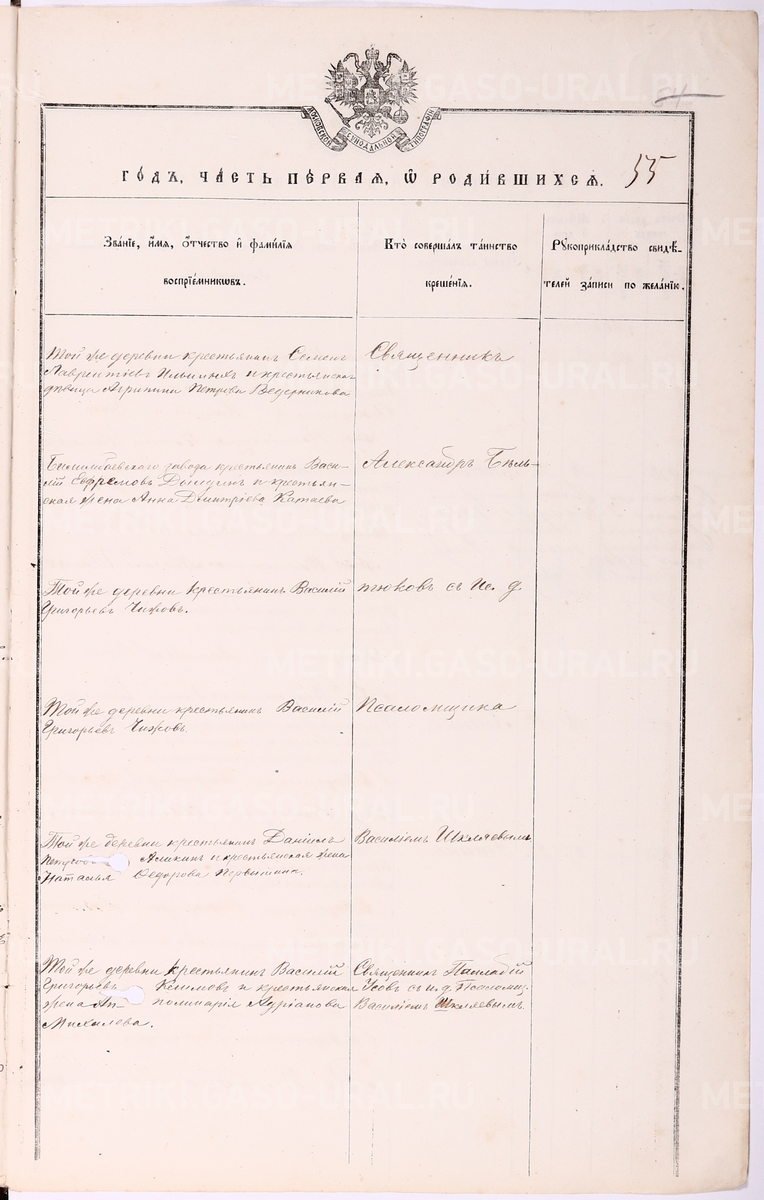 МОСКОВСКОЙ СѴНОДАЛЬНОЙ ТИПОГРАФІИ
55
ГО́ДЪ, ЧА́СТЬ ПЕ́РВАЯ, Ѽ РОДИ́ВШИХСѦ.
Зва́ніе, и҆́мя, ѻ҆́тчество и҆ фами́лїя
воспрїе́мникѡвъ.
Кто̀ соверша́лъ та́инство
креще́нїя.
Рꙋкоприкла́дство свидѣ́-
телей за́писи по жела́нїю.
Той же деревни крестьянинъ Семенъ
Лаврентіевъ и крестьянская
дѣвица Агрипина Петрова Ведерникова
Священникъ
Билимбаевскаго завода крестьянинъ Васи-
лій Ефремовъ и крестьян-
ская жена Анна Дмитріева Катаева
Александръ Бѣль-
Той же деревни крестьянинъ Василій
Григорьевъ Чижовъ.
тюковъ съ Ис. д.
Той же деревни крестьянинъ Василій
Григорьевъ Чижовъ.
Псаломщика
Той же деревни крестьянинъ Даніилъ
Аликинъ и крестьянская жена
Наталья Ѳедорова
Василіемъ Шкляевымъ
Той же деревни крестьянинъ Василій
Григорьевъ и крестьянская
жена Ап полинарія Адріанова
Михалева.
Священникъ Палладій
Усовъ съ и. д. Псаломщ.
Василіемъ Шкляевымъ.
METRIKI.GASO-URAL.RU